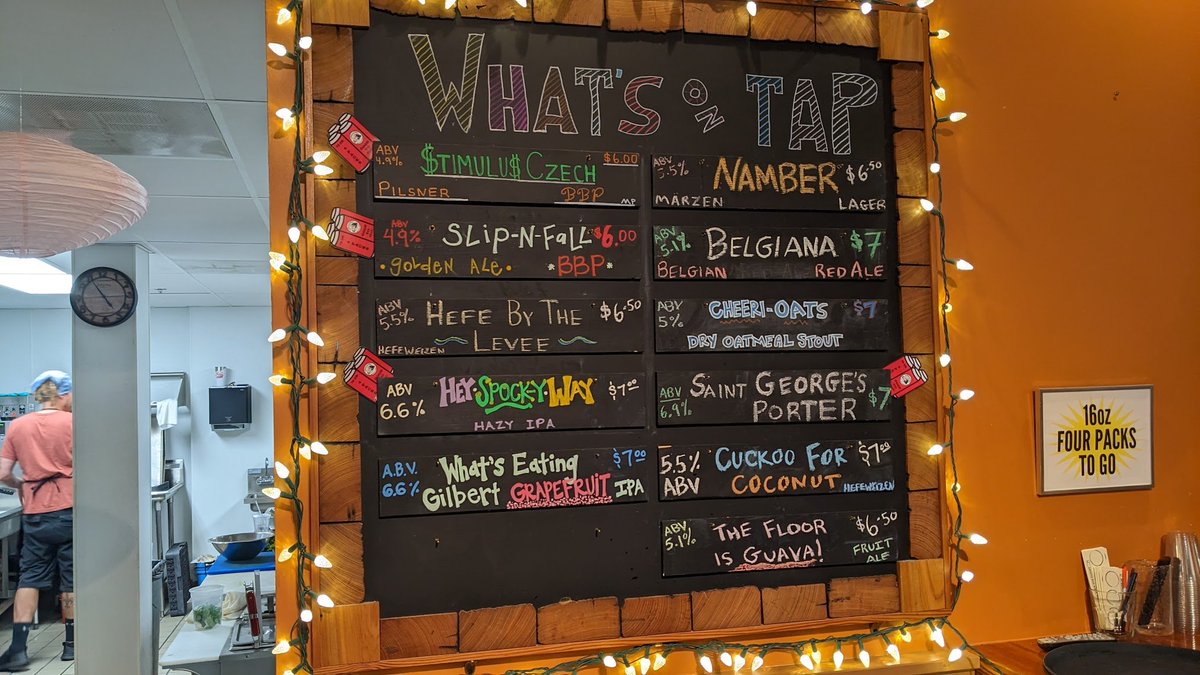 WHAT'S ON TAP
ABV 4.9% $TIMULU$ CZECH $6.00
PILSNER BBP MP
ABV 4.9% SLIP-N-FALL $6.00
•golden ALE• *BBP*
ABV 5.5% HEFE BY THE $6.50
HEFEWEIZEN LEVEE
ABV 6.6% HEY·SPOCKY·WAY $7.00
HAZY IPA
A.B.V. 6.6% What's Eating $7.00
Gilbert GRAPEFRUIT IPA
ABV 5.5% NAMBER $6.50
MÄRZEN LAGER
ABV 5.1% BELGIANA $7
BELGIAN RED ALE
ABV 5% CHEERI-OATS $7
DRY OATMEAL STOUT
ABV 6.9% SAINT GEORGE'S $7
PORTER
5.5% ABV CUCKOO FOR $7.00
COCONUT HEFEWEIZEN
ABV 5.1% THE FLOOR $6.50
IS GUAVA! FRUIT ALE
16oz
FOUR PACKS
TO GO